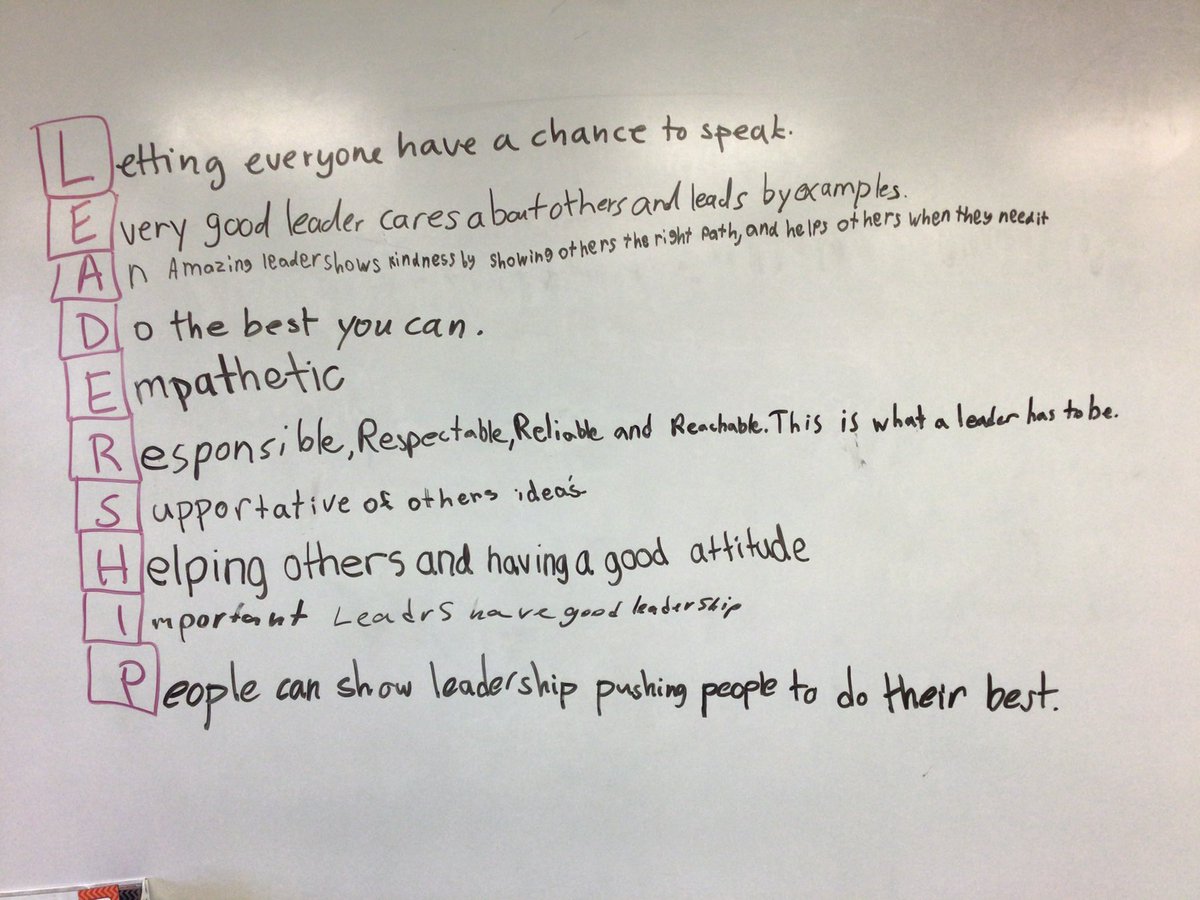 Letting everyone have a chance to speak.
Every good leader cares about others and leads by examples.
An Amazing leader shows kindness by showing others the right path, and helps others when they need it
Do the best you can.
Empathetic
Responsible, Respectable, Reliable and Reachable. This is what a leader has to be.
Supportative of others idea's
Helping others and having a good attitude
Important Leadrs have good leadership
People can show leadership pushing people to do their best.